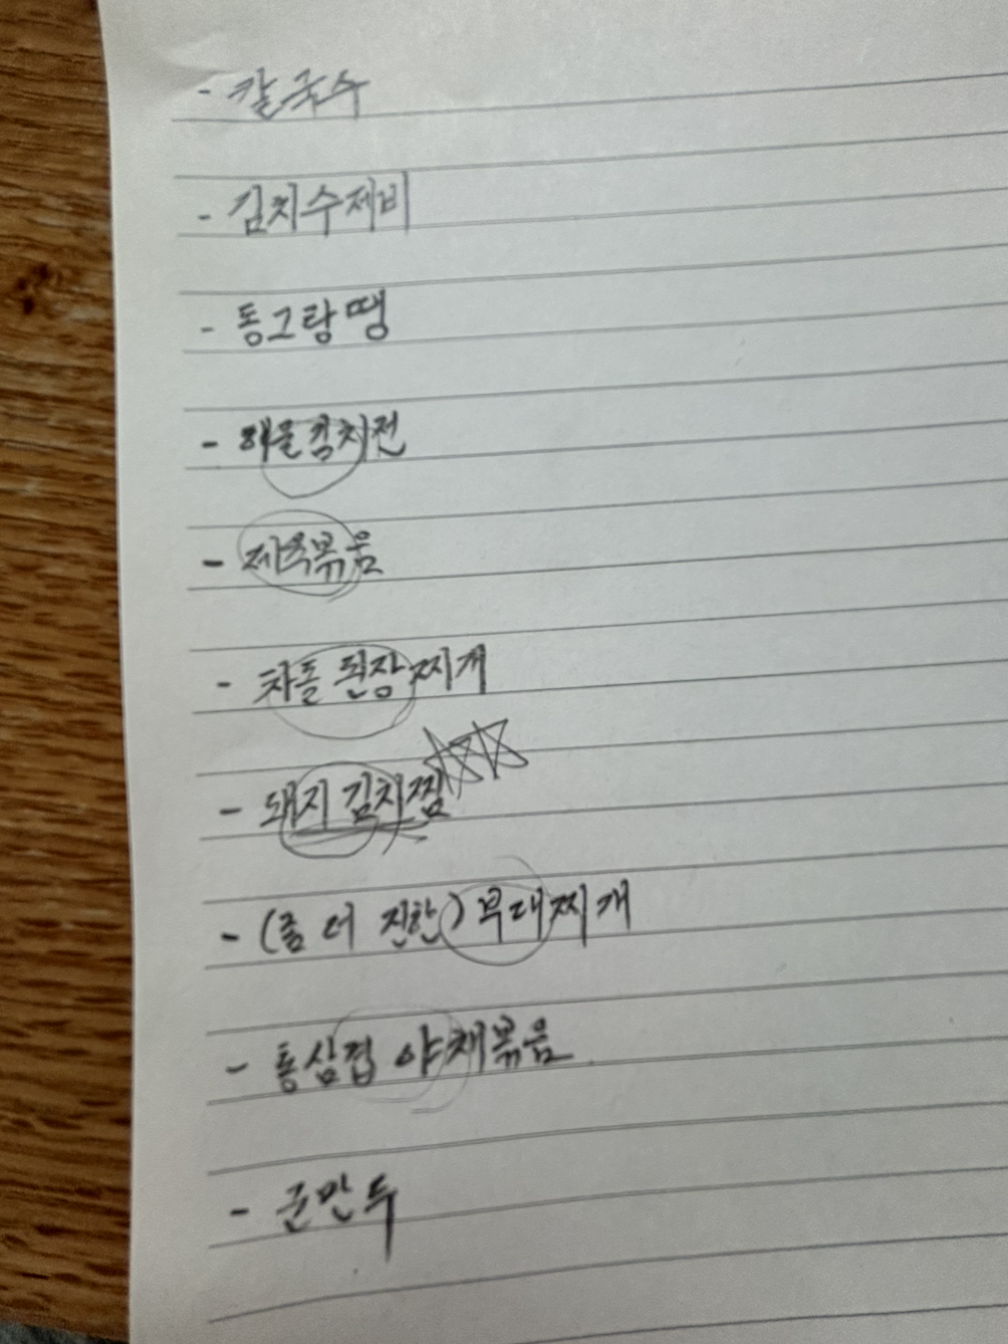 - 칼국수
- 김치수제비
- 동그랑땡
- 해물김치전
- 제육볶음
- 차돌 된장찌개
- 돼지 김치찜
- (좀 더 진한) 부대찌개
- 통삼겹 야채볶음
- 군만두